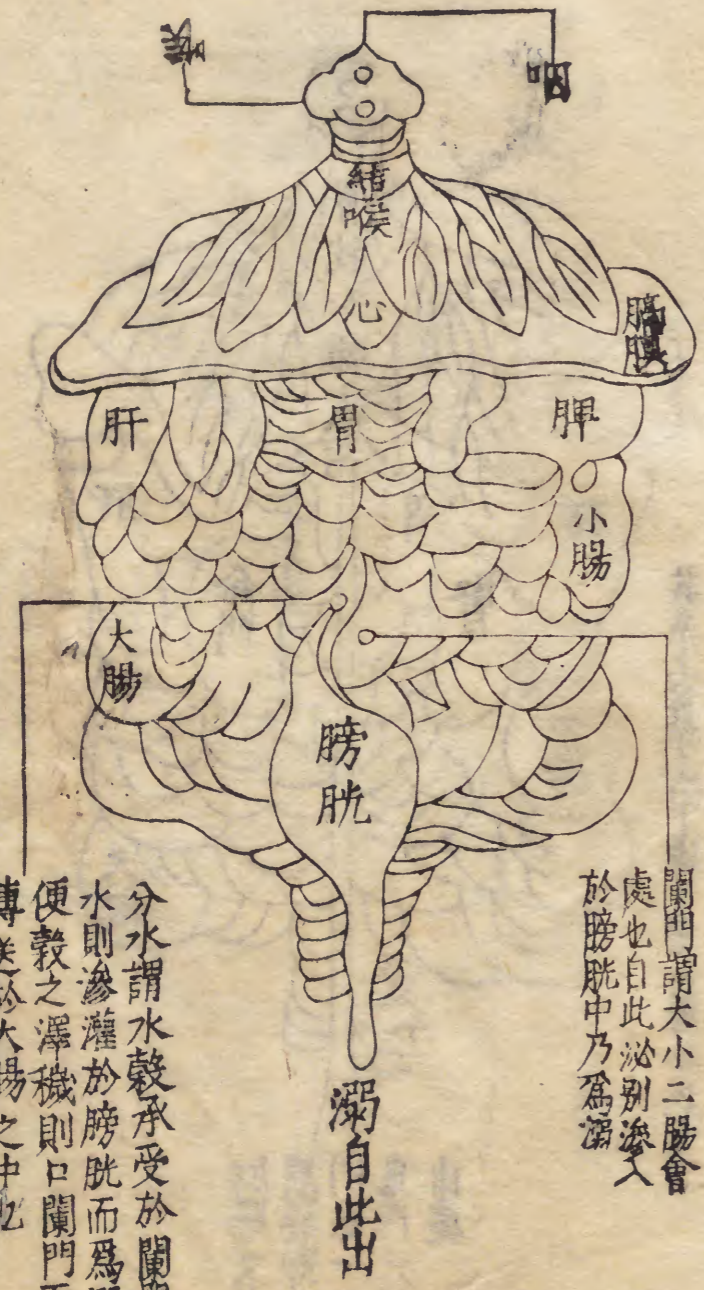 咽
喉
結喉
心
膈膜
肝
胃
脾
小腸
大腸
膀胱
闌門謂大小二腸會
處也自此泌別滲入
於膀胱中乃爲溺
溺自此出
分水謂水穀承受於闌
水則滲灌於膀胱而爲
便穀之滓穢則口闌門
傳送於大腸之中